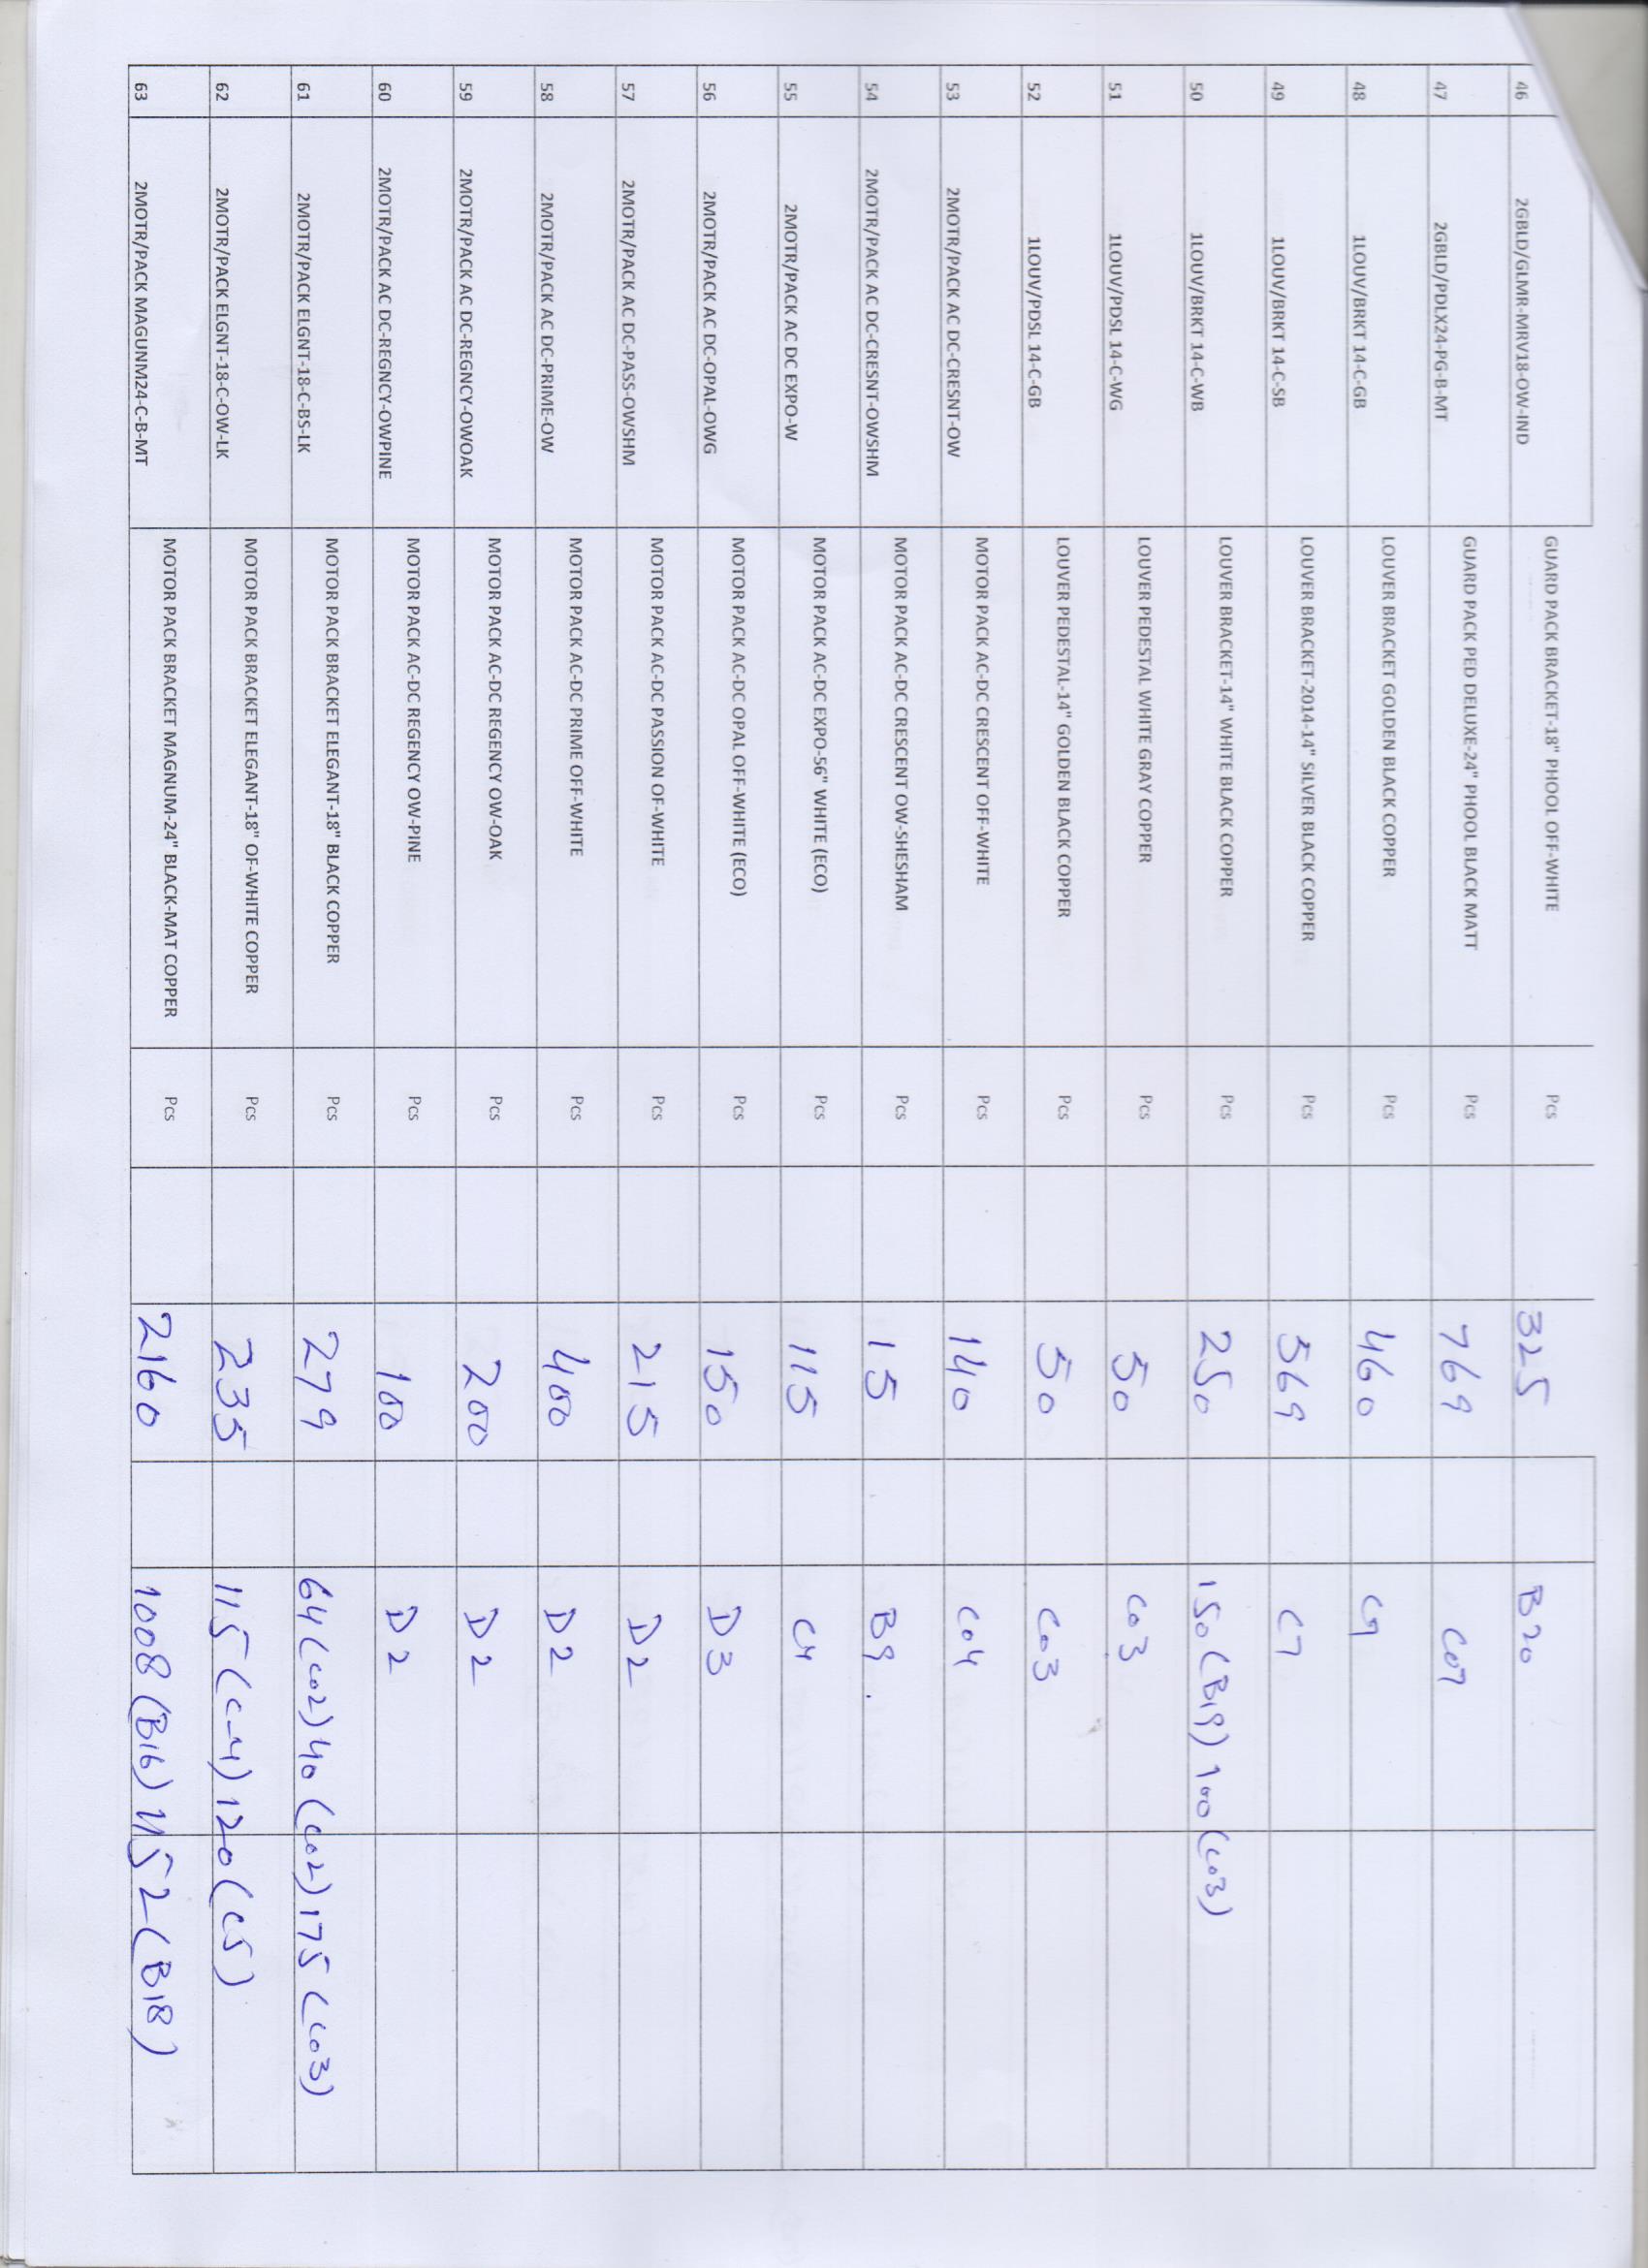 46 2GBLD/GLMR-MRV18-OW-IND GUARD PACK BRACKET-18" PHOOL OFF-WHITE Pcs 325 B20
47 2GBLD/PDLX24-PG-B-MT GUARD PACK PED DELUXE-24" PHOOL BLACK MATT Pcs 769 C07
48 1LOUV/BRKT 14-C-GB LOUVER BRACKET GOLDEN BLACK COPPER Pcs 460
49 1LOUV/BRKT 14-C-SB LOUVER BRACKET-2014-14" SILVER BLACK COPPER Pcs 569 C7
50 1LOUV/BRKT 14-C-WB LOUVER BRACKET-14" WHITE BLACK COPPER Pcs 250 150 (B19) 100 (C03)
51 1LOUV/PDSL 14-C-WG LOUVER PEDESTAL WHITE GRAY COPPER Pcs 50 C03
52 1LOUV/PDSL 14-C-GB LOUVER PEDESTAL-14" GOLDEN BLACK COPPER Pcs 50 C03
53 2MOTR/PACK AC DC-CRESNT-OW MOTOR PACK AC-DC CRESCENT OFF-WHITE Pcs 140 C04
54 2MOTR/PACK AC DC-CRESNT-OWSHM MOTOR PACK AC-DC CRESCENT OW-SHESHAM Pcs 15 B9 .
55 2MOTR/PACK AC DC EXPO-W MOTOR PACK AC-DC EXPO-56" WHITE (ECO) Pcs 115 C4
56 2MOTR/PACK AC DC-OPAL-OWG MOTOR PACK AC-DC OPAL OFF-WHITE (ECO) Pcs 150 D3
57 2MOTR/PACK AC DC-PASS-OWSHM MOTOR PACK AC-DC PASSION OF-WHITE Pcs 215 D2
58 2MOTR/PACK AC DC-PRIME-OW MOTOR PACK AC-DC PRIME OFF-WHITE Pcs 400 D2
59 2MOTR/PACK AC DC-REGNCY-OWOAK MOTOR PACK AC-DC REGENCY OW-OAK Pcs 200 D2
60 2MOTR/PACK AC DC-REGNCY-OWPINE MOTOR PACK AC-DC REGENCY OW-PINE Pcs 100 D2
61 2MOTR/PACK ELGNT-18-C-BS-LK MOTOR PACK BRACKET ELEGANT-18" BLACK COPPER Pcs 279 64 (C02) 40 (C02) 175 (C03)
62 2MOTR/PACK ELGNT-18-C-OW-LK MOTOR PACK BRACKET ELEGANT-18" OF-WHITE COPPER Pcs 235 115 (C-4) 120 (C5)
63 2MOTR/PACK MAGUNM24-C-B-MT MOTOR PACK BRACKET MAGNUM-24" BLACK-MAT COPPER Pcs 2160 1008 (B16) 1152 (B18)